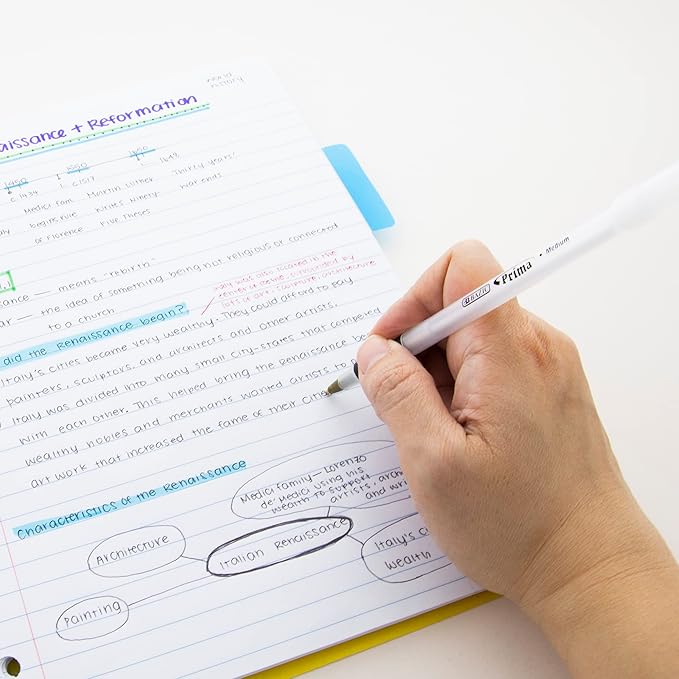 world
history
aissance + Reformation
1450 1550 1650
c1434 c.1517 1648
Medici Fam. Martin Luther Thirty Years'
begins rule writes Ninety- war ends
of Florence Five Theses
sance — means "rebirth"
ar — the idea of something being not religious or connected
to a church.
Italy was also located in the
center of surrounded by
lots of art, sculpture, architecture
did the Renaissance begin?
Italy's cities became very wealthy. They could afford to pay
painters, sculptors, and architects and other artists.
Italy was divided into many small city-states that competed
with each other. This helped bring the Renaissance
wealthy nobles and merchants wanted artists to
art work that increased the fame of their
Characteristics of the Renaissance
Medici family — Lorenzo
de' Medici using his
wealth to support
artists,
and
Architecture
Italian Renaissance
Italy's
wealth
Painting
BAZIC Prima Medium